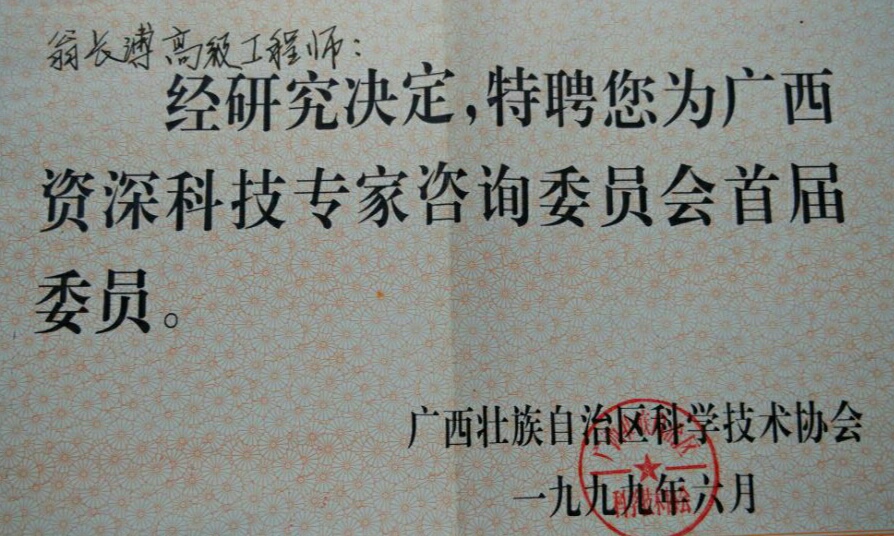 翁长溥高级工程师：
经研究决定，特聘您为广西
资深科技专家咨询委员会首届
委员。
广西壮族自治区科学技术协会
一九九九年六月